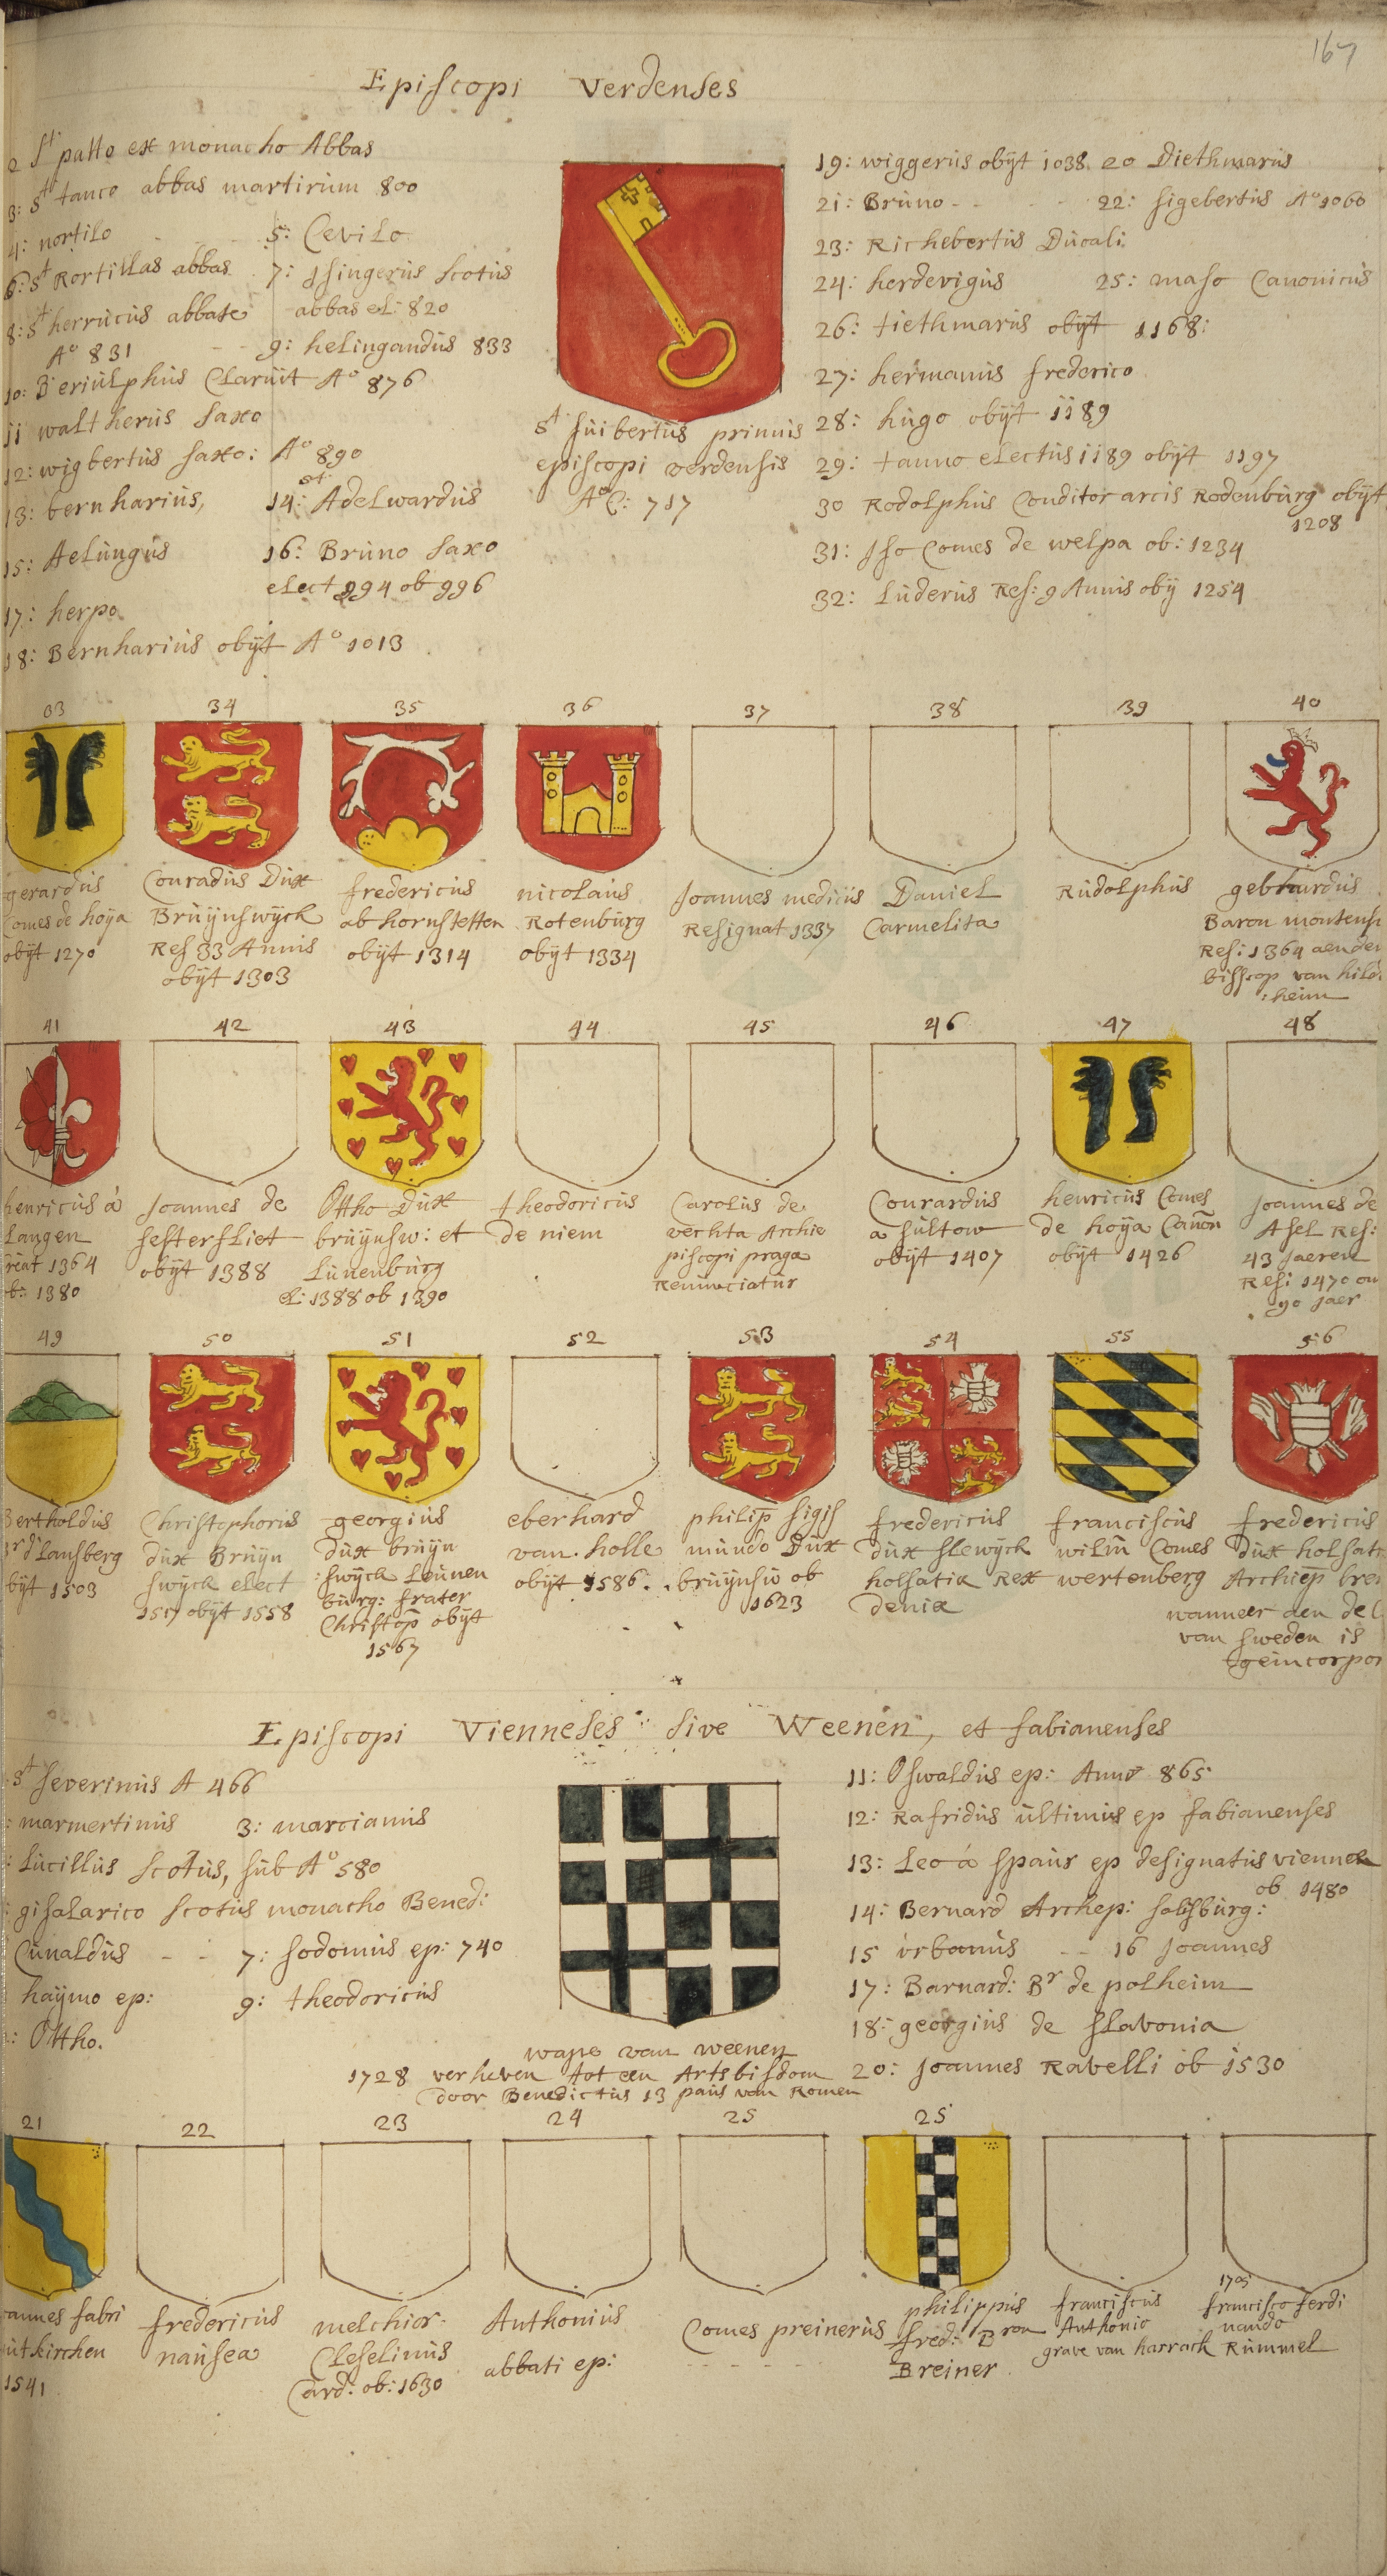 167
Episcopi Verdenses
2 St patto ex monacho Abbas
3: St tanco abbas martirum 800
4: nortilo 5: Cevilo
6: St Kortillas abbas 7: Isingerus Scotus
abbas el: 820
8: St herrucus abbate
Ao 831 9: helingandus 833
10: Beriulphus Claruit Ao 876
11 waltherus Saxo
12: wigbertus saxo: Ao 890
13: bernharius, 14: St Adelwardus
15: Aelungus 16: Bruno Saxo
elect 994 ob 996
17: herpo
18: Bernharius obijt Ao 1013
St Suibertus primus
episcopi verdensis
Ao C: 717
19: wiggerus obijt 1038 20 Diethmarus
21: Bruno - - 22: sigebertus Ao 1060
23: Richebertus Ducali
24: herdevigus 25: maso Canonicus
26: tiethmarus obijt 1168:
27: hermanus frederico
28: hugo obijt 1189
29: tanno electus 1189 obijt 1197
30 Rodolphus Conditor arcis Rodenburg obijt
1208
31: Iso Comes de welpa ob: 1234
32: Luderus Res: 9 Annis obij 1254
33 34 35 36 37 38 39 40
gerardus
Comes de hoija
obijt 1270
Conradus Dux
Bruijnswyck
Res 33 Annis
obijt 1303
fredericus
ab hornstetten
obijt 1314
nicolaus
Rotenburg
obijt 1334
Joannes medicus
Resignat 1337
Daniel
Carmelita
Rudolphus
gebhardus
Baron montensi
Res: 1364 aen den
bisscop van hild
:heim
41 42 43 44 45 46 47 48
henricus à
Langen
reat 1364
b: 1380
Joannes de
sesterfliet
obijt 1388
Ottho Dux
bruijnsw: et
Lunenburg
el: 1388 ob 1390
theodoricus
de niem
Carolus de
vechta Archie
piscopi praga
Renunciatur
Conrardus
a sultow
obijt 1407
henricus Comes
de hoija Canon
obijt 1426
Joannes de
Asel Res:
43 Jaeren
Res: 1470 ou
90 jaer
49 50 51 52 53 54 55 56
Bertholdus
Br d'Lansberg
bijt 1503
Christophorus
dux Bruijn
swyck elect
obijt 1558
georgius
dux bruijn
:swyck Leunen
burg: frater
Christop obijt
1567
eberhard
van holle
obijt 1586.
philip sigis
mundo Dux
bruijnsw ob
1623
fredericus
dux slewyck
holsatia Rex
denia
franciscus
wilm Comes
wertenberg
fredericus
dux holsat
Archiep bre
wanneer aen de C
van sweden is
geincorpor
Episcopi Vienneses sive Weenen, et fabianenses
St Severinus A 466
: marmertinus 3: marcianus
: Lucillus Scotus, sub Ao 580
: gisalarico Scotus monacho Bened:
Cunaldus - - 7: sodomus ep: 740
haijmo ep: 9: theodoricus
: Ottho.
wape van weenen
1728 verheven tot een Artsbisdom
door Benedictus 13 paus van Romen
11: Oswaldus ep: Anno 865
12: Rafridus ultimus ep fabianenses
13: Leo à spaur ep designatus viennea
ob 1480
14: Bernard Archep: salsburg:
15 urbanus - - 16 Joannes
17: Barnard: Br de polheim
18: georgius de slavonia
20: Joannes Ravelli ob 1530
21 22 23 24 25 25
oannes fabri
utkirchen
1541
fredericus
nausea
melchior
Cleselinus
Card: ob: 1630
Anthonius
abbati ep:
Comes preinerus
philippus
fred: Bron
Breiner
franciscus
Anthonio
grave van harrach
1705
francisco ferdi
nando
Rummel